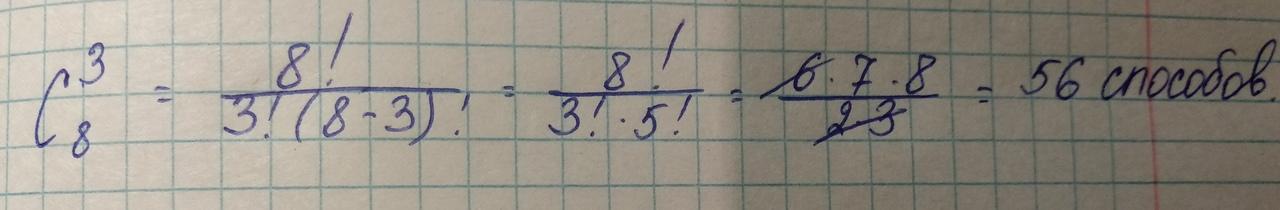 C₈³ = 8! / 3!(8-3)! = 8! / 3!·5! = 6·7·8 / 2·3 = 56 способов.